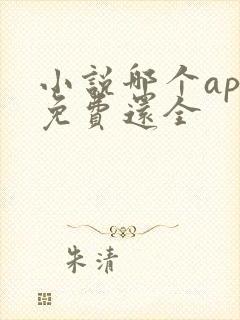 小説哪个ap
免費還全
朱清